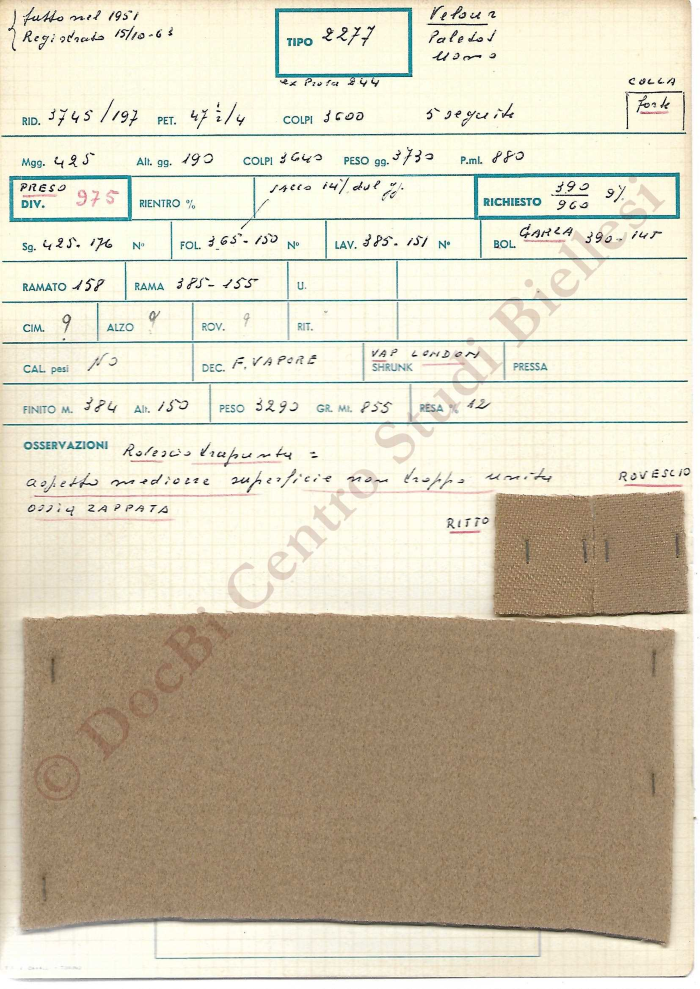 fatto nel 1951
Registrato 15/10-63
TIPO 2277
Velour
Paletot
Uomo
ex Prova 244
COLLA
forte
RID. 3745/197 PET. 47 ½/4 COLPI 3600 5 seguite
Mgg. 425 Alt. gg. 190 COLPI 3640 PESO gg. 3730 P.ml. 880
PRESO
DIV. 975
RIENTRO %
sacco 14% dal
RICHIESTO 390/960 9%
Sg. 425-176 N° FOL. 365-150 N° LAV. 385-151 N° BOL. GARZA 390-145
RAMATO 158 RAMA 385-155 U.
CIM. 9 ALZO 9 ROV. 9 RIT.
CAL. pesi NO DEC. F. VAPORE VAP LONDON SHRUNK PRESSA
FINITO M. 384 Alt. 150 PESO 3290 GR. Mt. 855 RESA % 12
OSSERVAZIONI Rovescio trapunta =
aspetto mediocre superficie non troppo unita
ossia ZAPPATA
ROVESCIO
RITTO
© DocBi Centro Studi Biellesi